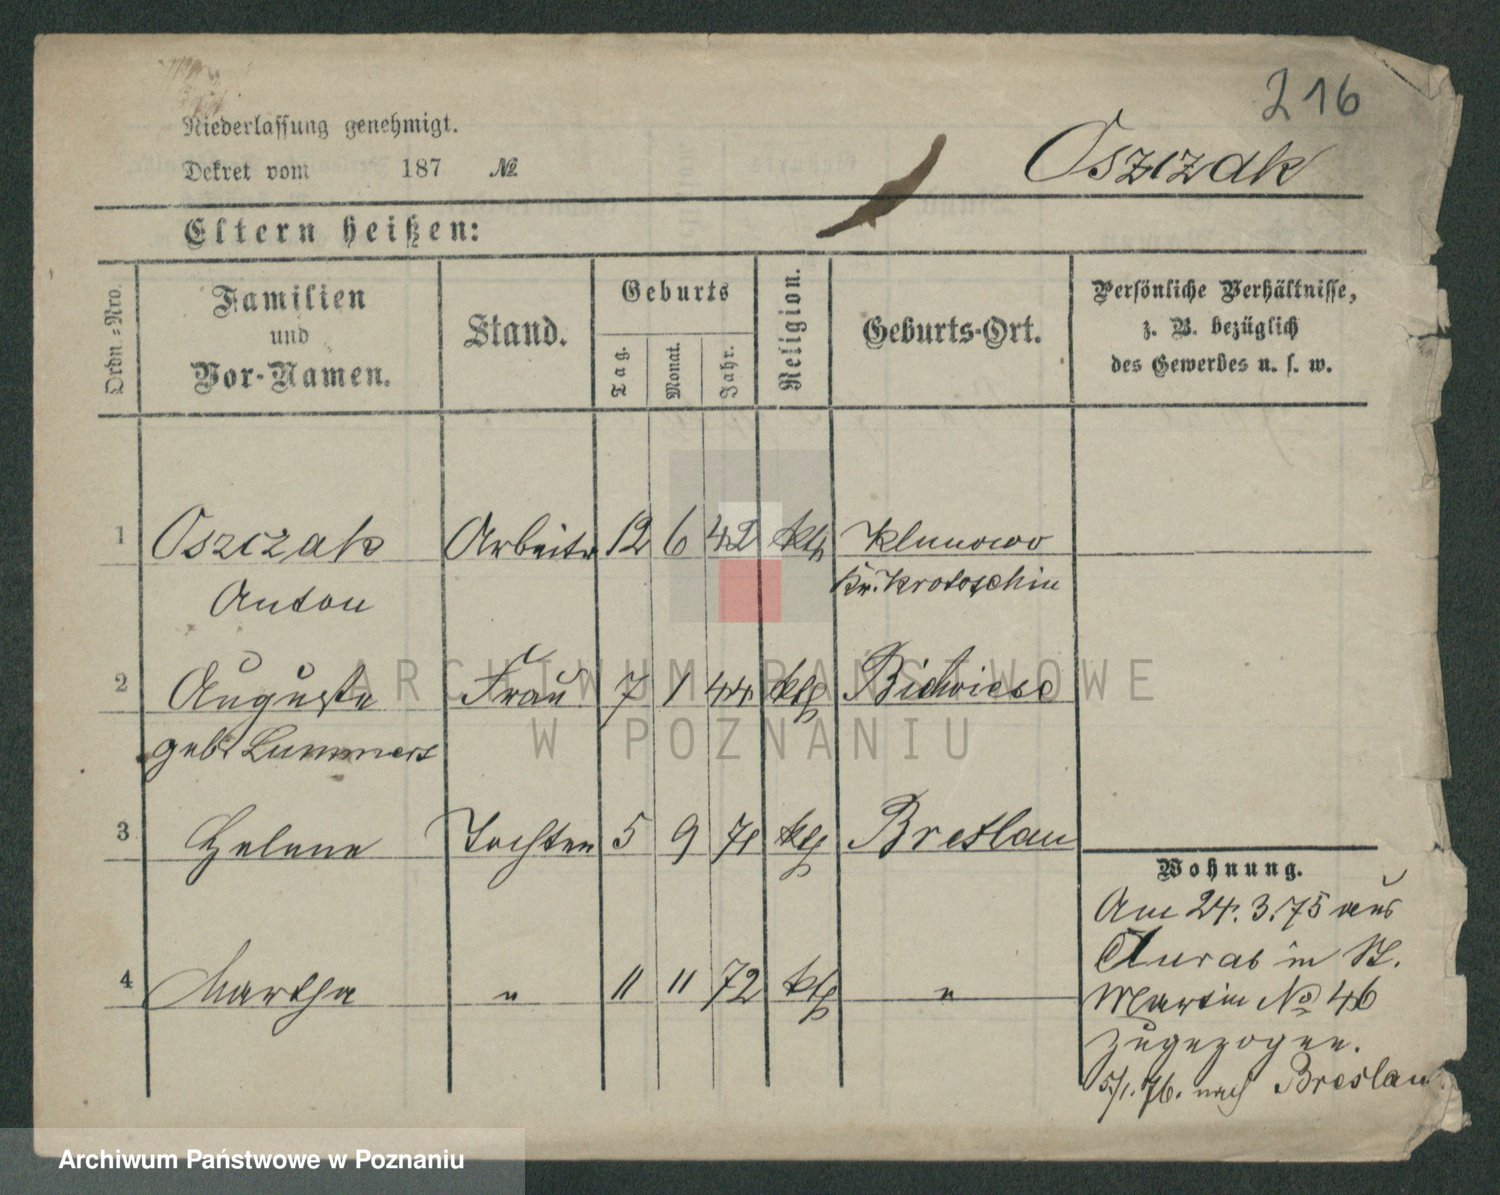 216
Niederlassung genehmigt.
Dekret vom 187 №
Oszczak
Eltern heißen:
Ordn.-Nro.
Familien und Vor-Namen.
Stand.
Geburts
Tag. Monat. Jahr.
Religion.
Geburts-Ort.
Persönliche Verhältnisse,
z. B. bezüglich
des Gewerbes u. s. w.
1 Oszczak Arbeiter 12 6 42 kth
Anton Kr. Krotoschin
2 Auguste Frau 7 1 44 kth
geb.
3 Helene Tochter 5 9 71 kth Breslau
4 Martha " 11 11 72 kth "
Wohnung.
Am 24.3.75 aus
in St.
Martin No 46
zugezogen.
5/1.76. nach Breslau.
ARCHIWUM PAŃSTWOWE
W POZNANIU
Archiwum Państwowe w Poznaniu